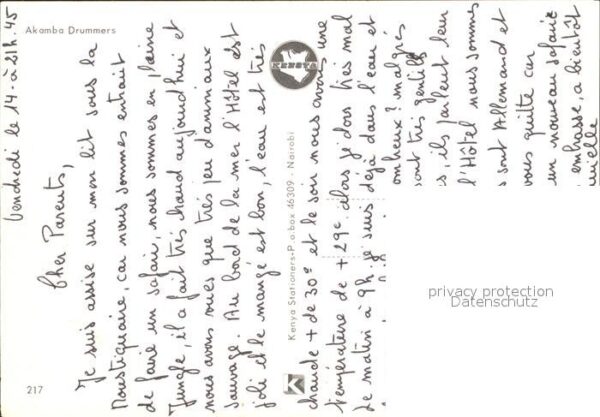 Akamba Drummers
Vendredi le 14 - à 21h.45
Cher Parents,
Je suis assise sur mon lit sous la
Moustiquaire, car nous sommes entrait
de faire un safari, nous sommes en pleine
Jungle, il a fait très chaud aujourd'hui et
nous avons vues que très peu d'animaux
sauvage. Au bord de la mer l'Hôtel est
joli et le mangé est bon, l'eau est très
chaude + de 30° et le soir nous avons une
température de + 29° alors je dors très mal
Le matin à 9h. je suis déjà dans l'eau et
malgrés
sont très gentils
s, ils parlent leur
l'Hôtel nous sommes
s sont Allemand et
vous quitte car
un nouveau safari
embrasse, a bientôt
KENYA
Kenya Stationers-P.o.box 46309 - Nairobi
K
217
privacy protection
Datenschutz